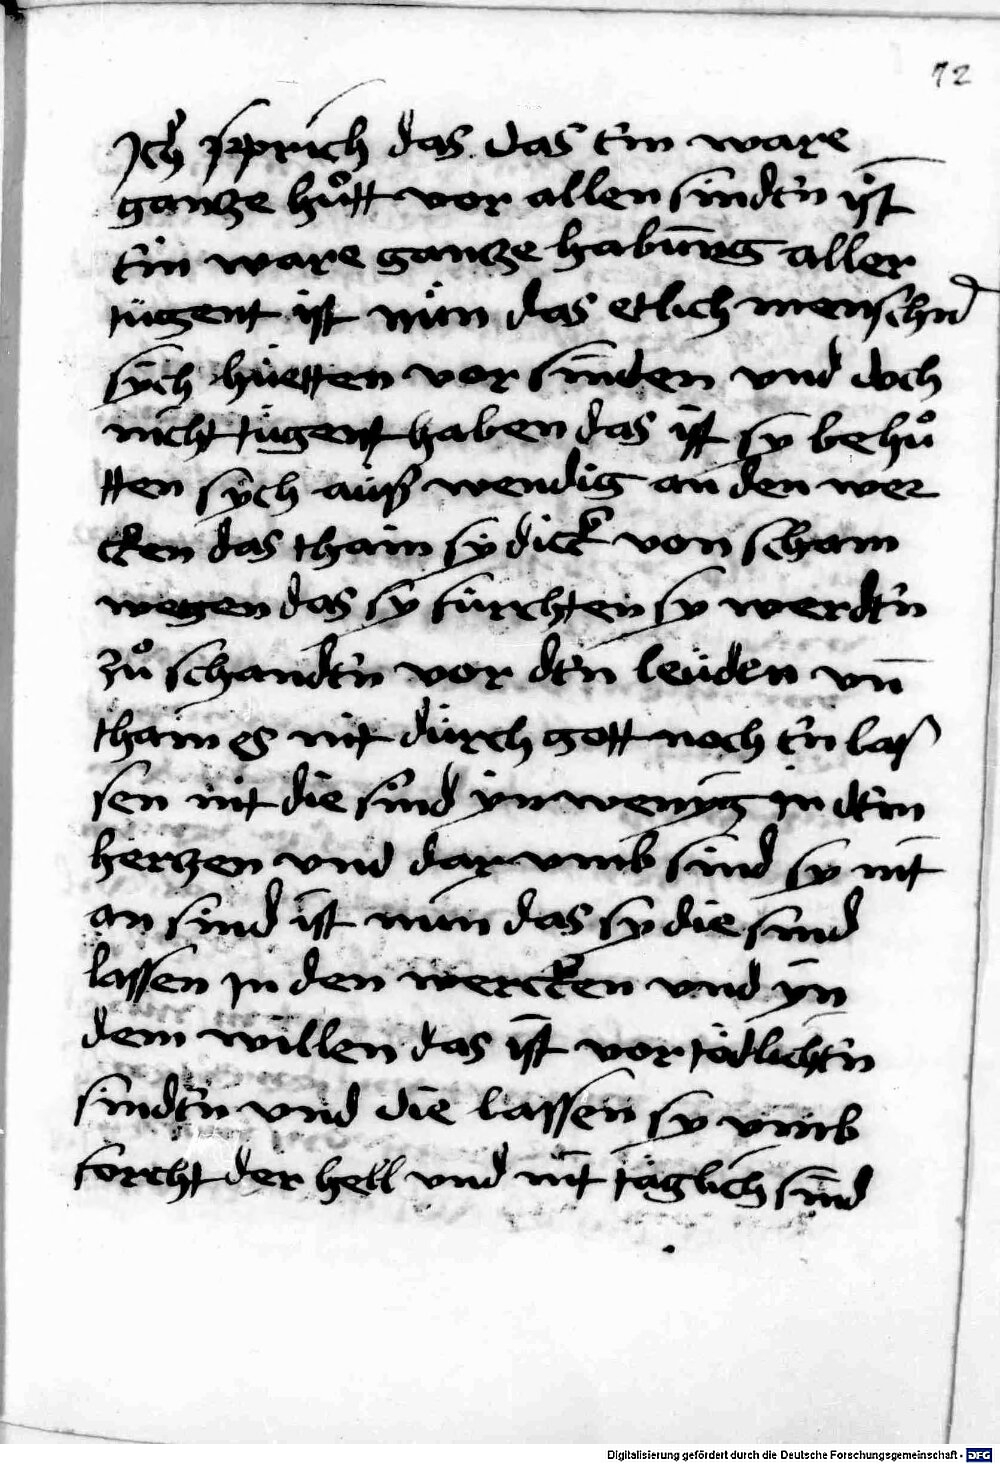 72
Ich spprich das das ein ware
gantze hůtt vor allen sinden ist
ein ware gantze habung aller
tugent ist nün das etlich menschn
sÿch hüetten vor sinden vnd doch
nicht tügent haben das ist sy behů
tten sÿch auß wendig an den wer
cken das thain sÿ dick von scham
wegen das sÿ fürchten sy werden
zů schanden vor den leüden vn̄
thain es nit dürch gott noch en las
sen nit die sind ÿnwenÿg in dem
hertzen vnd dar vmb sind sy nit
an sind ist nün das sy die sind
lassen in den wercken vnd ÿn
dem willen das ist vor tödlichen
sinden vnd die lassen sy vmb
forcht der hell vnd nit täglich sind
Digitalisierung gefördert durch die Deutsche Forschungsgemeinschaft - DFG